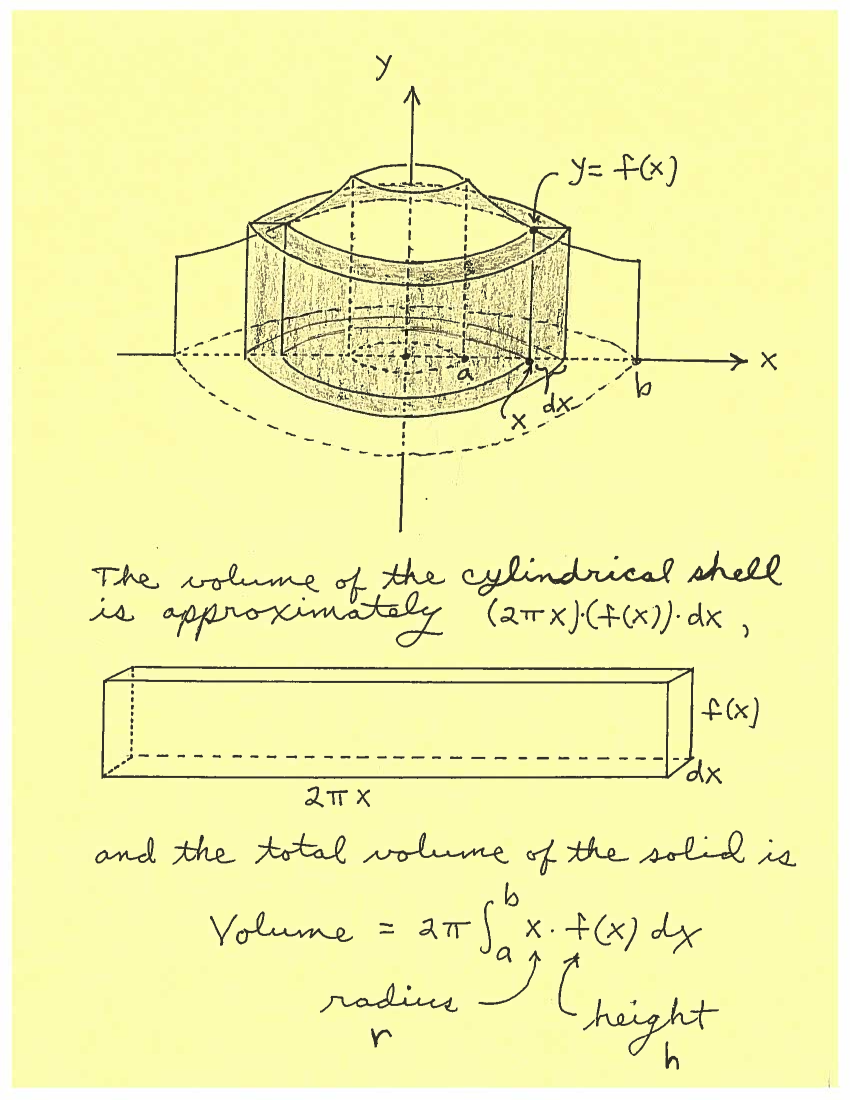 y
y = f(x)
x
a
x
dx
b
The volume of the cylindrical shell
is approximately (2π x)·(f(x))· dx ,
f(x)
dx
2π x
and the total volume of the solid is
Volume = 2π ∫_a^b x · f(x) dx
radius
r
height
h